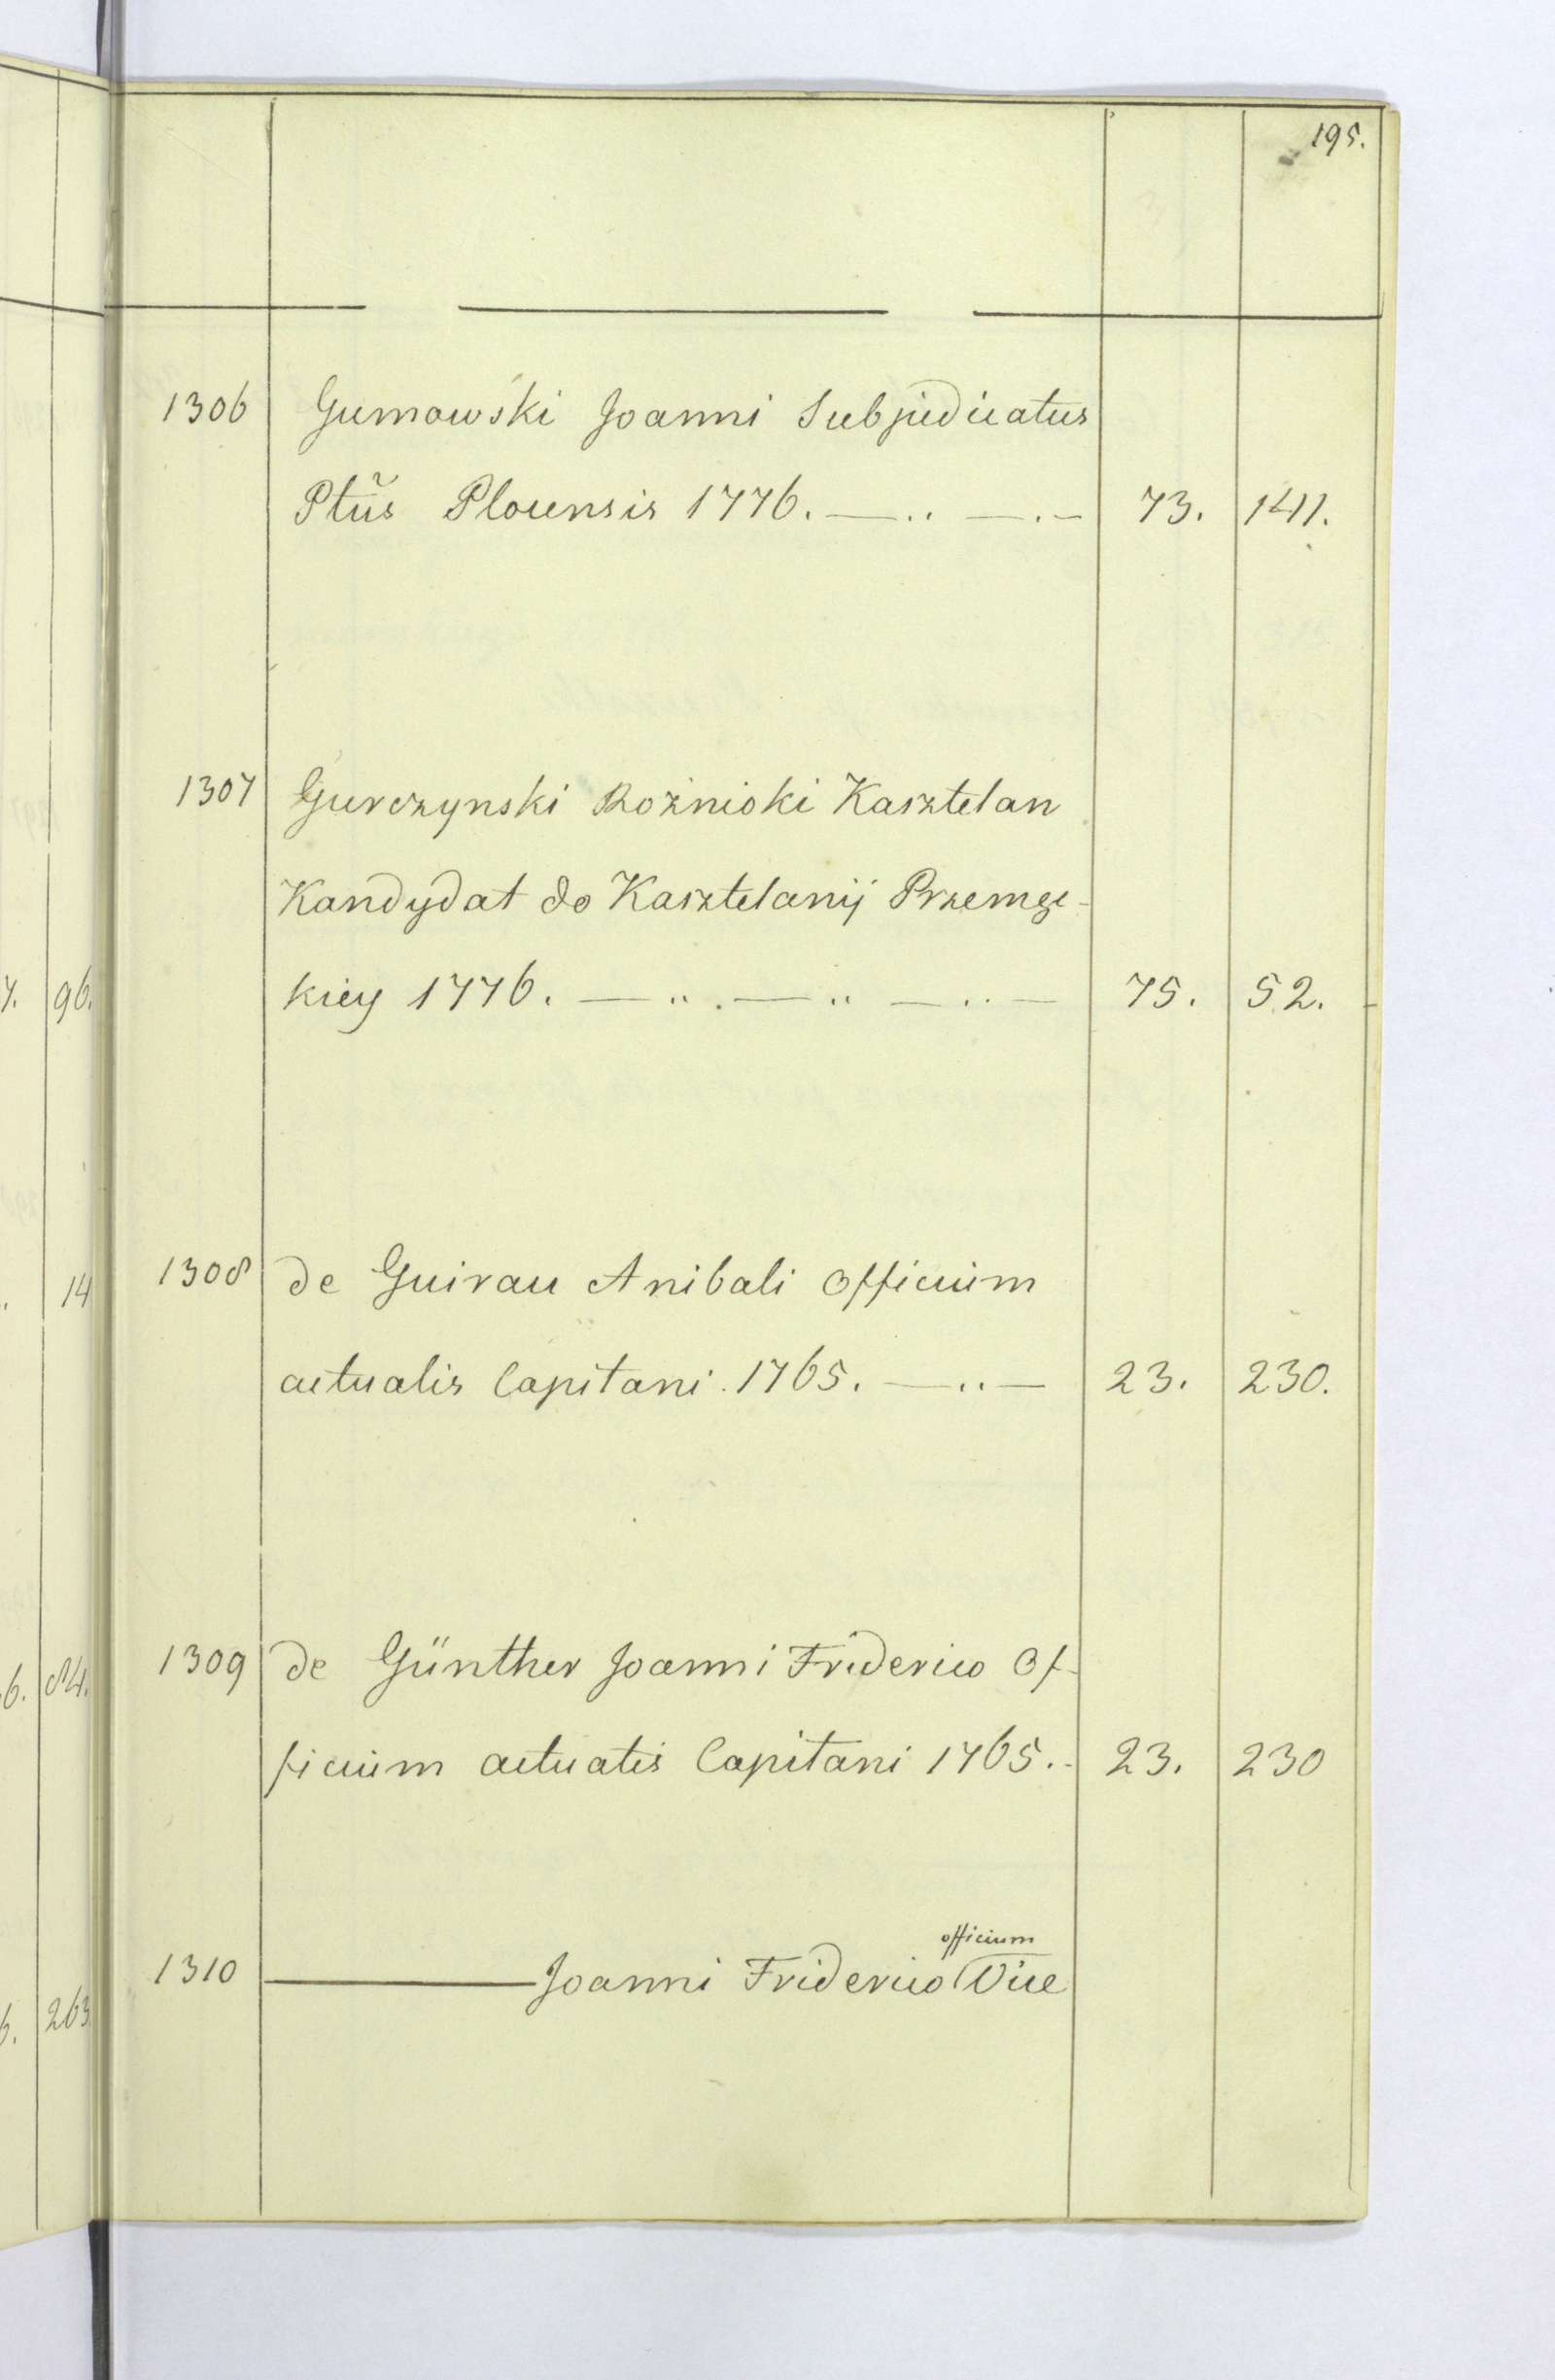 195.
1306 Gumowski Joanni Subjudicatus
Ptũs Plocensis 1776. — .. — . – 73. 141.
1307 Gurczynski Rożnioki Kasztelan
Kandydat do Kasztelanij Przemę-
kiey 1776. — .. . — .. — .. — 75. 52.
1308 de Guirau Anibali Officium
actualis Capitani 1765. — .. — 23. 230.
1309 de Günther Joanni Friderico Of-
ficium actualis Capitani 1765. - 23. 230
officium
1310 ——— Joanni Friderico Vice
7. 96.
. 14
6. 84.
6. 263